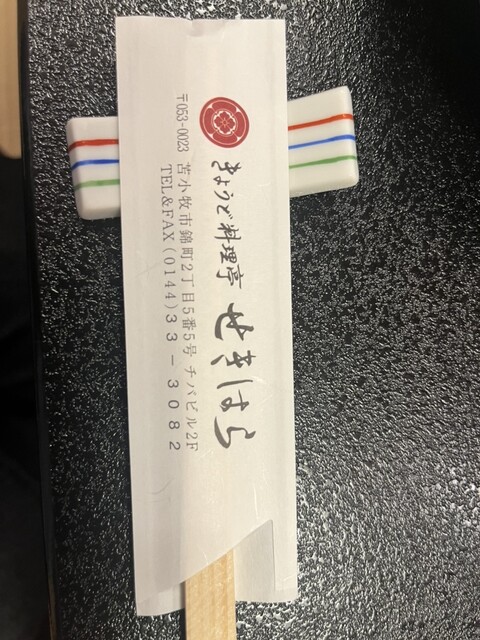 きょうど料理亭 せきはら
〒053-0023 苫小牧市錦町2丁目5番5号 チバビル2F
TEL&FAX(0144)33-3082